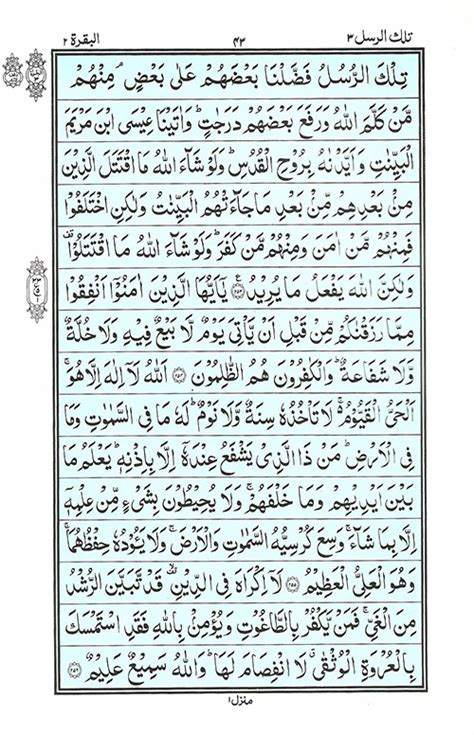 تلك الرسل ٣ ٤٣ البقرة ٢
تِلْكَ الرُّسُلُ فَضَّلْنَا بَعْضَهُمْ عَلٰى بَعْضٍ ۘ مِنْهُمْ
مَّنْ كَلَّمَ اللّٰهُ وَرَفَعَ بَعْضَهُمْ دَرَجٰتٍ ؕ وَاٰتَيْنَا عِيْسَى ابْنَ مَرْيَمَ
الْبَيِّنٰتِ وَاَيَّدْنٰهُ بِرُوْحِ الْقُدُسِ ؕ وَلَوْ شَآءَ اللّٰهُ مَا اقْتَتَلَ الَّذِيْنَ
مِنْۢ بَعْدِهِمْ مِّنْۢ بَعْدِ مَا جَآءَتْهُمُ الْبَيِّنٰتُ وَلٰكِنِ اخْتَلَفُوْا
فَمِنْهُمْ مَّنْ اٰمَنَ وَمِنْهُمْ مَّنْ كَفَرَ ؕ وَلَوْ شَآءَ اللّٰهُ مَا اقْتَتَلُوْا ۟
وَلٰكِنَّ اللّٰهَ يَفْعَلُ مَا يُرِيْدُ ﴿٢٥٣﴾ يٰۤاَيُّهَا الَّذِيْنَ اٰمَنُوْۤا اَنْفِقُوْا
مِمَّا رَزَقْنٰكُمْ مِّنْ قَبْلِ اَنْ يَّاْتِيَ يَوْمٌ لَّا بَيْعٌ فِيْهِ وَلَا خُلَّةٌ
وَّلَا شَفَاعَةٌ ؕ وَالْكٰفِرُوْنَ هُمُ الظّٰلِمُوْنَ ﴿٢٥٤﴾ اَللّٰهُ لَاۤ اِلٰهَ اِلَّا هُوَ ۚ
الْحَيُّ الْقَيُّوْمُ ۚ لَا تَاْخُذُهٗ سِنَةٌ وَّلَا نَوْمٌ ؕ لَهٗ مَا فِي السَّمٰوٰتِ وَمَا
فِي الْاَرْضِ ؕ مَنْ ذَا الَّذِيْ يَشْفَعُ عِنْدَهٗۤ اِلَّا بِاِذْنِهٖ ؕ يَعْلَمُ مَا
بَيْنَ اَيْدِيْهِمْ وَمَا خَلْفَهُمْ ۚ وَلَا يُحِيْطُوْنَ بِشَيْءٍ مِّنْ عِلْمِهٖۤ
اِلَّا بِمَا شَآءَ ۚ وَسِعَ كُرْسِيُّهُ السَّمٰوٰتِ وَالْاَرْضَ ۚ وَلَا يَـُٔوْدُهٗ حِفْظُهُمَا ۚ
وَهُوَ الْعَلِيُّ الْعَظِيْمُ ﴿٢٥٥﴾ لَاۤ اِكْرَاهَ فِي الدِّيْنِ ۙ قَدْ تَّبَيَّنَ الرُّشْدُ
مِنَ الْغَيِّ ۚ فَمَنْ يَّكْفُرْ بِالطَّاغُوْتِ وَيُؤْمِنْۢ بِاللّٰهِ فَقَدِ اسْتَمْسَكَ
بِالْعُرْوَةِ الْوُثْقٰى ۗ لَا انْفِصَامَ لَهَا ؕ وَاللّٰهُ سَمِيْعٌ عَلِيْمٌ ﴿٢٥٦﴾
منزل ١